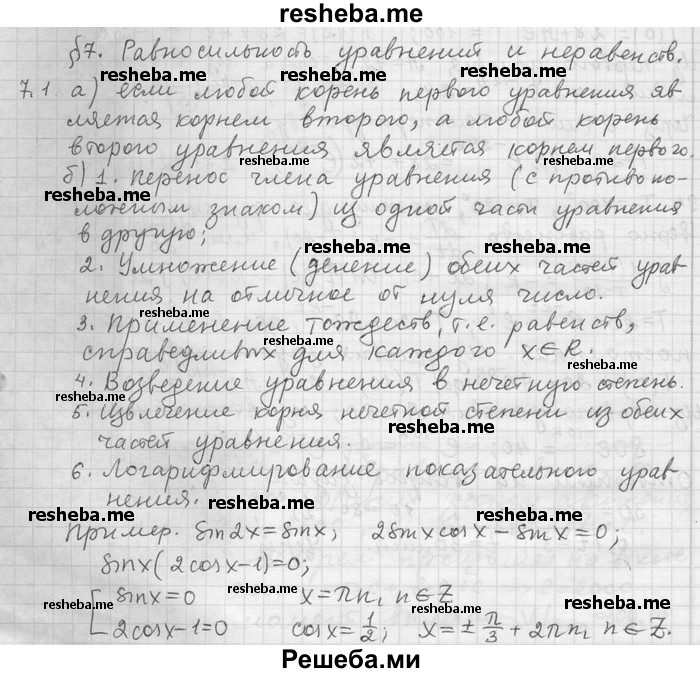 resheba.me
§7. Равносильность уравнений и неравенств.
resheba.me resheba.me resheba.me
7.1 а) если любой корень первого уравнения яв-
ляется корнем второго, а любой корень
resheba.me resheba.me
второго уравнения является корнем первого.
resheba.me
б) 1. перенос члена уравнения (с противопо-
resheba.me
ложным знаком) из одной части уравнения
в другую;
resheba.me resheba.me
2. Умножение (деление) обеих частей урав-
нения на отличное от нуля число.
resheba.me
3. Применение тождеств, т.е. равенств,
resheba.me
справедливых для каждого x∈R.
resheba.me
4. Возведение уравнения в нечётную степень.
5. Извлечение корня нечетной степени из обеих
resheba.me
частей уравнения.
6. Логарифмирование показательного урав-
нения.
resheba.me resheba.me resheba.me
Пример. sin2x=sinx; 2sinxcosx-sinx=0;
sinx(2cosx-1)=0;
resheba.me resheba.me resheba.me
sinx=0 x=πn, n∈Z
2cosx-1=0 cosx=1/2; x=±π/3+2πn, n∈Z.
Решеба.ми